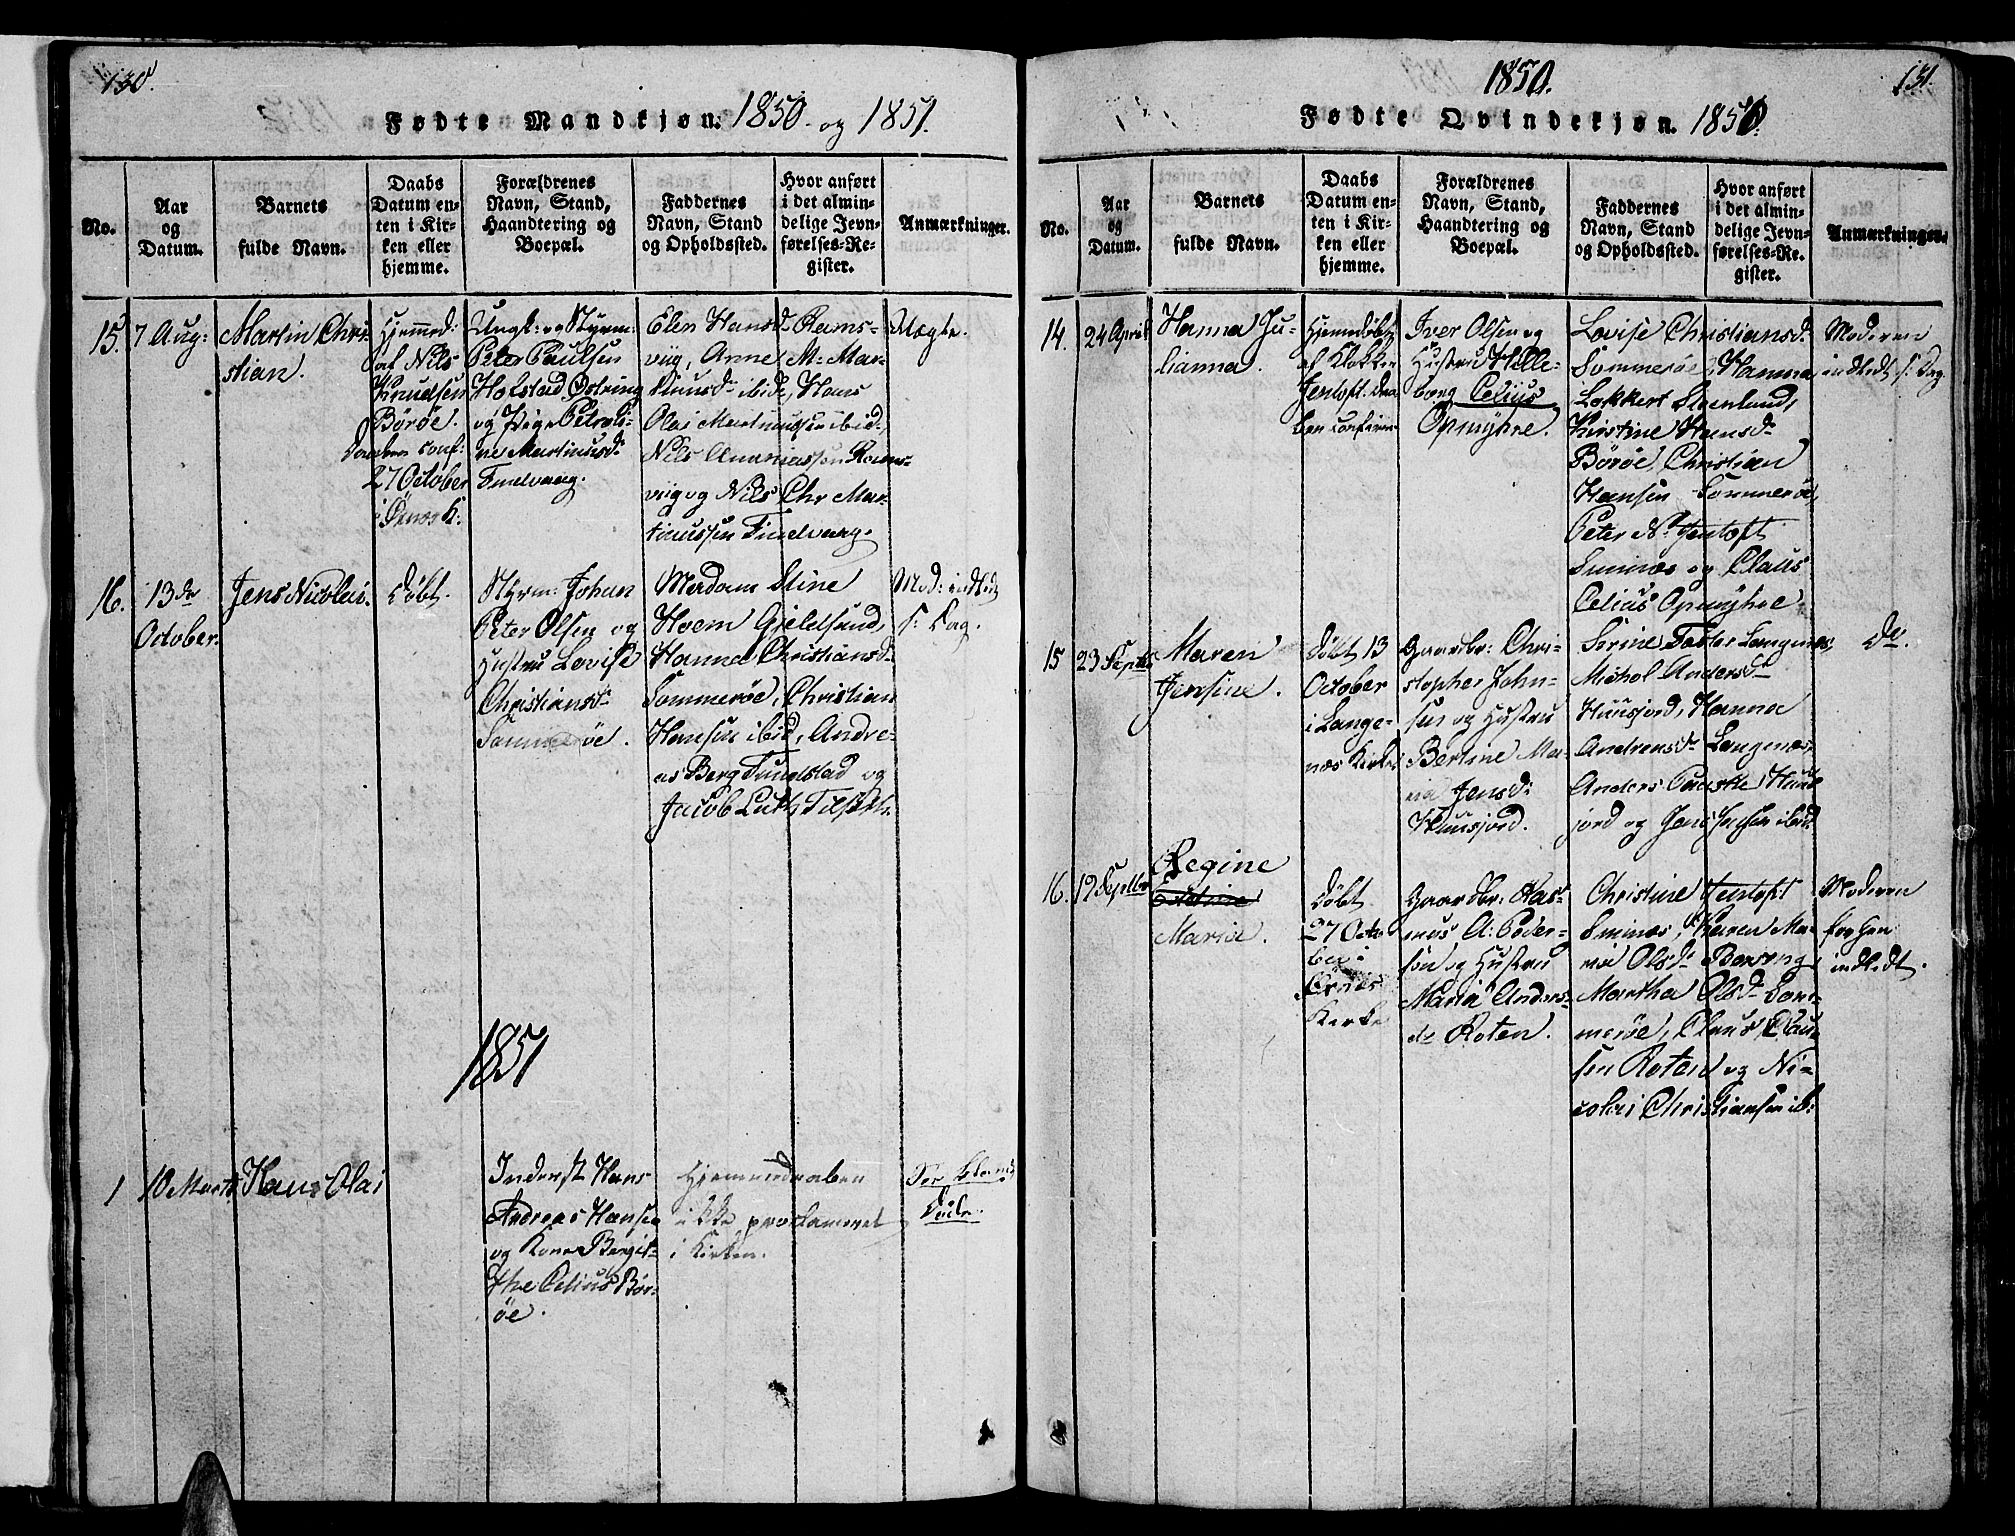 130.
Fødte Mandkjøn. 1850. og 1851.
No.
Aar
og
Datum.
Barnets
fulde Navn.
Daabs
Datum en-
ten i Kir-
ken eller
hjemme.
Forældrenes
Navn, Stand,
Haandtering og
Boepæl.
Faddernes
Navn, Stand
og Opholdssted.
Hvor anført
i det almin-
delige Jevn-
førelses-Re-
gister.
Anmærkninger.
15.
7 Aug:
Martin Chri-
stian.
Hjemmed:
af Nils
Knudsen
Børøe.
Daaben conf:
27 October
i Øxnæs K:
Ungk: og Styrm:
Peter Paulsen
Hofstad
og Pige
ne Martinusd:
Finelvaag.
Elen Hansd: Rams-
viig, Anne M: Mar-
tinusd: ibid, Hans
Olai Martinussen ibid,
Nils Ananiassen Rams-
viig og Nils Chr Mar-
tinussen Finelvaag.
Uægte.
16.
13de
October.
Jens Nicolai.
Døbt.
Styrm: Johan
Peter Olsen og
Hustru Lovise
Christiansd:
Sommerøe.
Madam Stine
Hoem Gieldsund,
Hanna Christiansd:
Sommerøe, Christian
Hansen ibid, Andre-
as Berg Tundstad og
Jacob Luth
Mod: indledt
s: Dag.
1851
1
10 Marts
Hans Olai
Inderst Hans
Andreas Hansen
og Kone Bergit-
the Celius Bør-
øe.
Hjemmedaaben
ikke proclameret
i Kirken.
Døde.
1850.
131.
Fødte Qvindekjøn. 1850.
No.
Aar
og
Datum.
Barnets
fulde Navn.
Daabs
Datum en-
ten i Kir-
ken eller
hjemme.
Forældrenes
Navn, Stand,
Haandtering og
Boepæl.
Faddernes
Navn, Stand
og Opholdssted.
Hvor anført
i det almin-
delige Jevn-
førelses-Re-
gister.
Anmærkninger.
14.
24 April
Hanna Ju-
lianna.
Hjemdøbt
af Klokker
Jentoft. Daa-
ben confirm:
Iver Olsen og
Hustru Hille-
borg Celius
Opmyhre.
Lovise Christiansd:
Sommerøe, Hanna
Lokkert Steenland,
Kirstine Hansd:
Børøe, Christian
Hansen Sommerøe,
Peter N. Jentoft
Smines og Claus
Celius Opmyhre.
Moderen
indledt s: Dag.
15
23 Septbr
Maren
Jensine.
Døbt 13
October
i Lange-
næs Kirke
Gaardbr: Chri-
stopher John-
sen og Hustru
Bertine Ma-
ria Jensd:
Huusjord.
Sorine Foster Langenæs,
Michol Andersd:
Huusjord, Hanna
Andreasd: Langenæs,
Anders Huus-
jord og Jens Jensen ibid
Do.
16.
19 Septbr
Regine
Maria.
Døbt
27 Octo-
ber i
Øxnæs
Kirke
Gaardbr: Ras-
mus A: Peder-
sen og Hustru
Maria Anders-
dr Roten.
Christine Jentoft
Smines, Karen Ma-
ria Olsd:
Martha Olsd: Som-
merøe, Claus Clau-
sen Roten og Ni-
colai Christiansen ib:
Moderen
forhen
indledt.